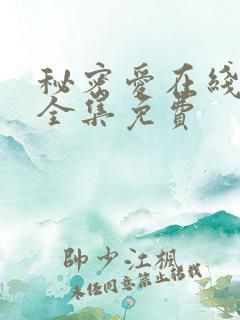 秘密爱在綫
全集免費
帥少江楓
未经同意禁止转载